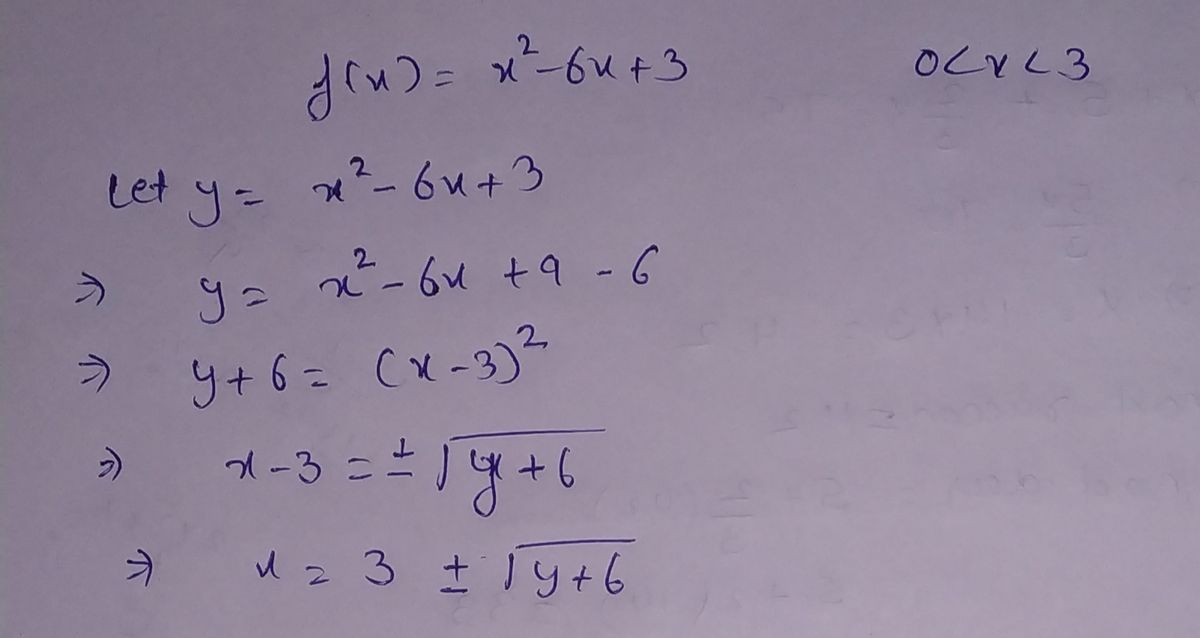 f(x) = x² - 6x + 3 0 < x < 3
Let y = x² - 6x + 3
⇒ y = x² - 6x + 9 - 6
⇒ y + 6 = (x - 3)²
⇒ x - 3 = ± √y + 6
⇒ x = 3 ± √y + 6